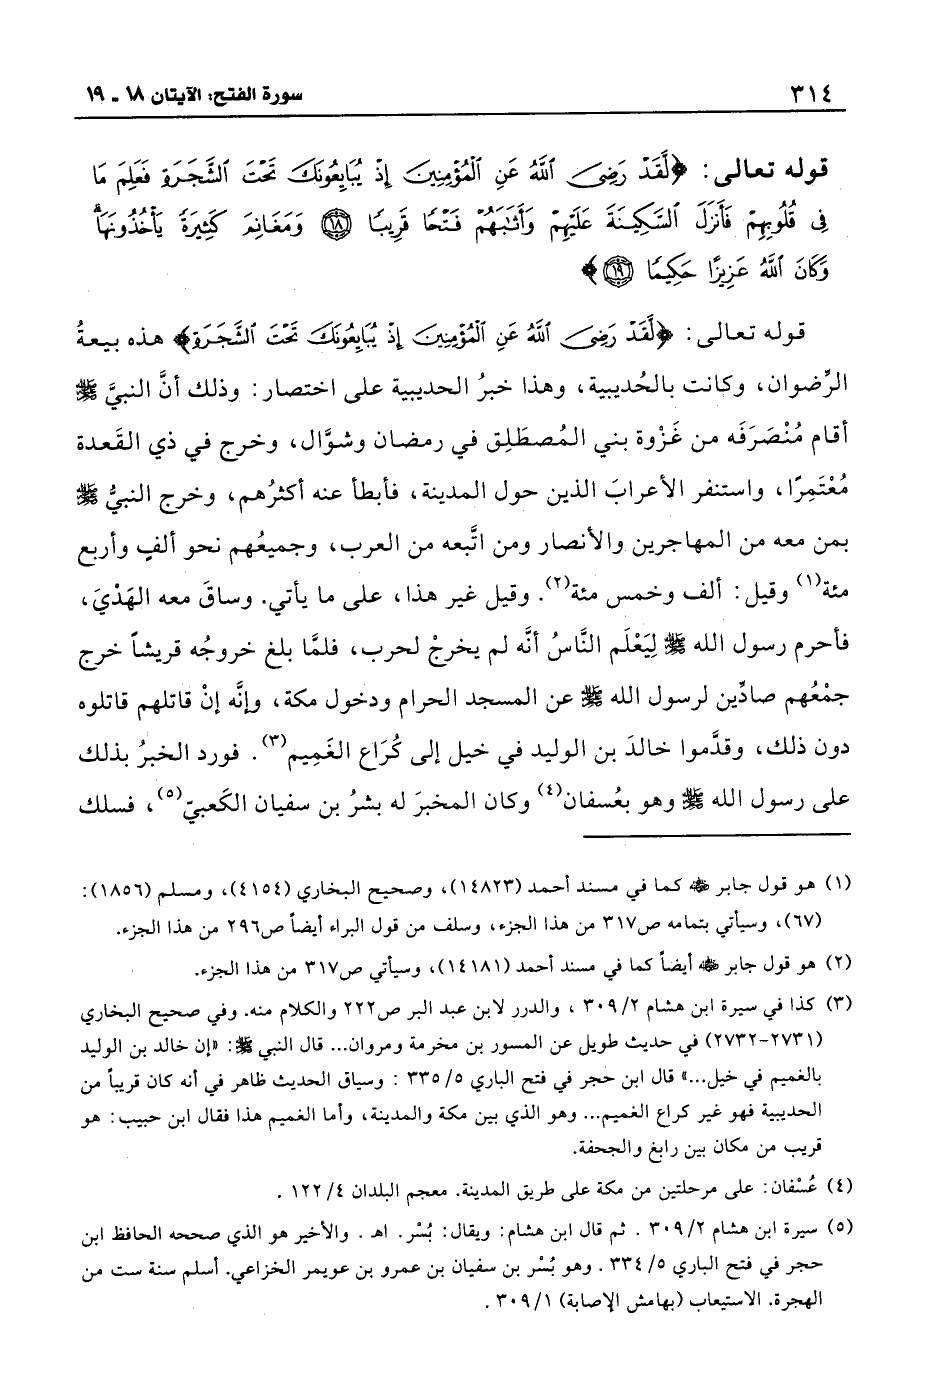 ٣١٤
سورة الفتح: الآيتان ١٨ - ١٩
قوله تعالى: ﴿لَّقَدْ رَضِىَ ٱللَّهُ عَنِ ٱلْمُؤْمِنِينَ إِذْ يُبَايِعُونَكَ تَحْتَ ٱلشَّجَرَةِ فَعَلِمَ مَا
فِى قُلُوبِهِمْ فَأَنزَلَ ٱلسَّكِينَةَ عَلَيْهِمْ وَأَثَٰبَهُمْ فَتْحًا قَرِيبًا ﴿١٨﴾ وَمَغَانِمَ كَثِيرَةً يَأْخُذُونَهَا ۗ
وَكَانَ ٱللَّهُ عَزِيزًا حَكِيمًا ﴿١٩﴾﴾
قوله تعالى: ﴿لَّقَدْ رَضِىَ ٱللَّهُ عَنِ ٱلْمُؤْمِنِينَ إِذْ يُبَايِعُونَكَ تَحْتَ ٱلشَّجَرَةِ﴾ هذه بيعةُ
الرِّضوان، وكانت بالحُديبية، وهذا خبرُ الحديبية على اختصار: وذلك أنَّ النبيَّ ﷺ
أقام مُنْصَرَفَه من غَزوة بني المُصطَلِق في رمضان وشوَّال، وخرج في ذي القَعدة
مُعْتَمِرًا، واستنفر الأعرابَ الذين حول المدينة، فأبطأ عنه أكثرُهم، وخرج النبيُّ ﷺ
بمن معه من المهاجرين والأنصار ومن اتَّبعه من العرب، وجميعُهم نحو ألفٍ وأربع
مئة(١) وقيل: ألف وخمس مئة(٢). وقيل غير هذا، على ما يأتي. وساقَ معه الهَدْيَ،
فأحرم رسول الله ﷺ لِيَعْلَم النَّاسُ أنَّه لم يخرجْ لحرب، فلمَّا بلغ خروجُه قريشاً خرج
جمْعُهم صادِّين لرسول الله ﷺ عن المسجد الحرام ودخول مكة، وإنَّه إنْ قاتلهم قاتلوه
دون ذلك، وقدَّموا خالدَ بن الوليد في خيل إلى كُرَاع الغَمِيم(٣). فورد الخبرُ بذلك
على رسول الله ﷺ وهو بعُسفان(٤) وكان المخبرَ له بشرُ بن سفيان الكَعبيّ(٥)، فسلك
(١) هو قول جابر ﷺ كما في مسند أحمد (١٤٨٢٣)، وصحيح البخاري (٤١٥٤)، ومسلم (١٨٥٦):
(٦٧)، وسيأتي بتمامه ص٣١٧ من هذا الجزء، وسلف من قول البراء أيضاً ص٢٩٦ من هذا الجزء.
(٢) هو قول جابر ﷺ أيضاً كما في مسند أحمد (١٤١٨١)، وسيأتي ص٣١٧ من هذا الجزء.
(٣) كذا في سيرة ابن هشام ٣٠٩/٢ ، والدرر لابن عبد البر ص٢٢٢ والكلام منه. وفي صحيح البخاري
(٢٧٣١-٢٧٣٢) في حديث طويل عن المسور بن مخرمة ومروان... قال النبي ﷺ: «إن خالد بن الوليد
بالغميم في خيل...» قال ابن حجر في فتح الباري ٣٣٥/٥ : وسياق الحديث ظاهر في أنه كان قريباً من
الحديبية فهو غير كراع الغميم... وهو الذي بين مكة والمدينة، وأما الغميم هذا فقال ابن حبيب: هو
قريب من مكان بين رابغ والجحفة.
(٤) عُسْفان: على مرحلتين من مكة على طريق المدينة. معجم البلدان ١٢٢/٤ .
(٥) سيرة ابن هشام ٣٠٩/٢ . ثم قال ابن هشام: ويقال: بُسْر. اهـ . والأخير هو الذي صححه الحافظ ابن
حجر في فتح الباري ٣٣٤/٥ . وهو بُسْر بن سفيان بن عمرو بن عويمر الخزاعي. أسلم سنة ست من
الهجرة. الاستيعاب (بهامش الإصابة) ٣٠٩/١ .